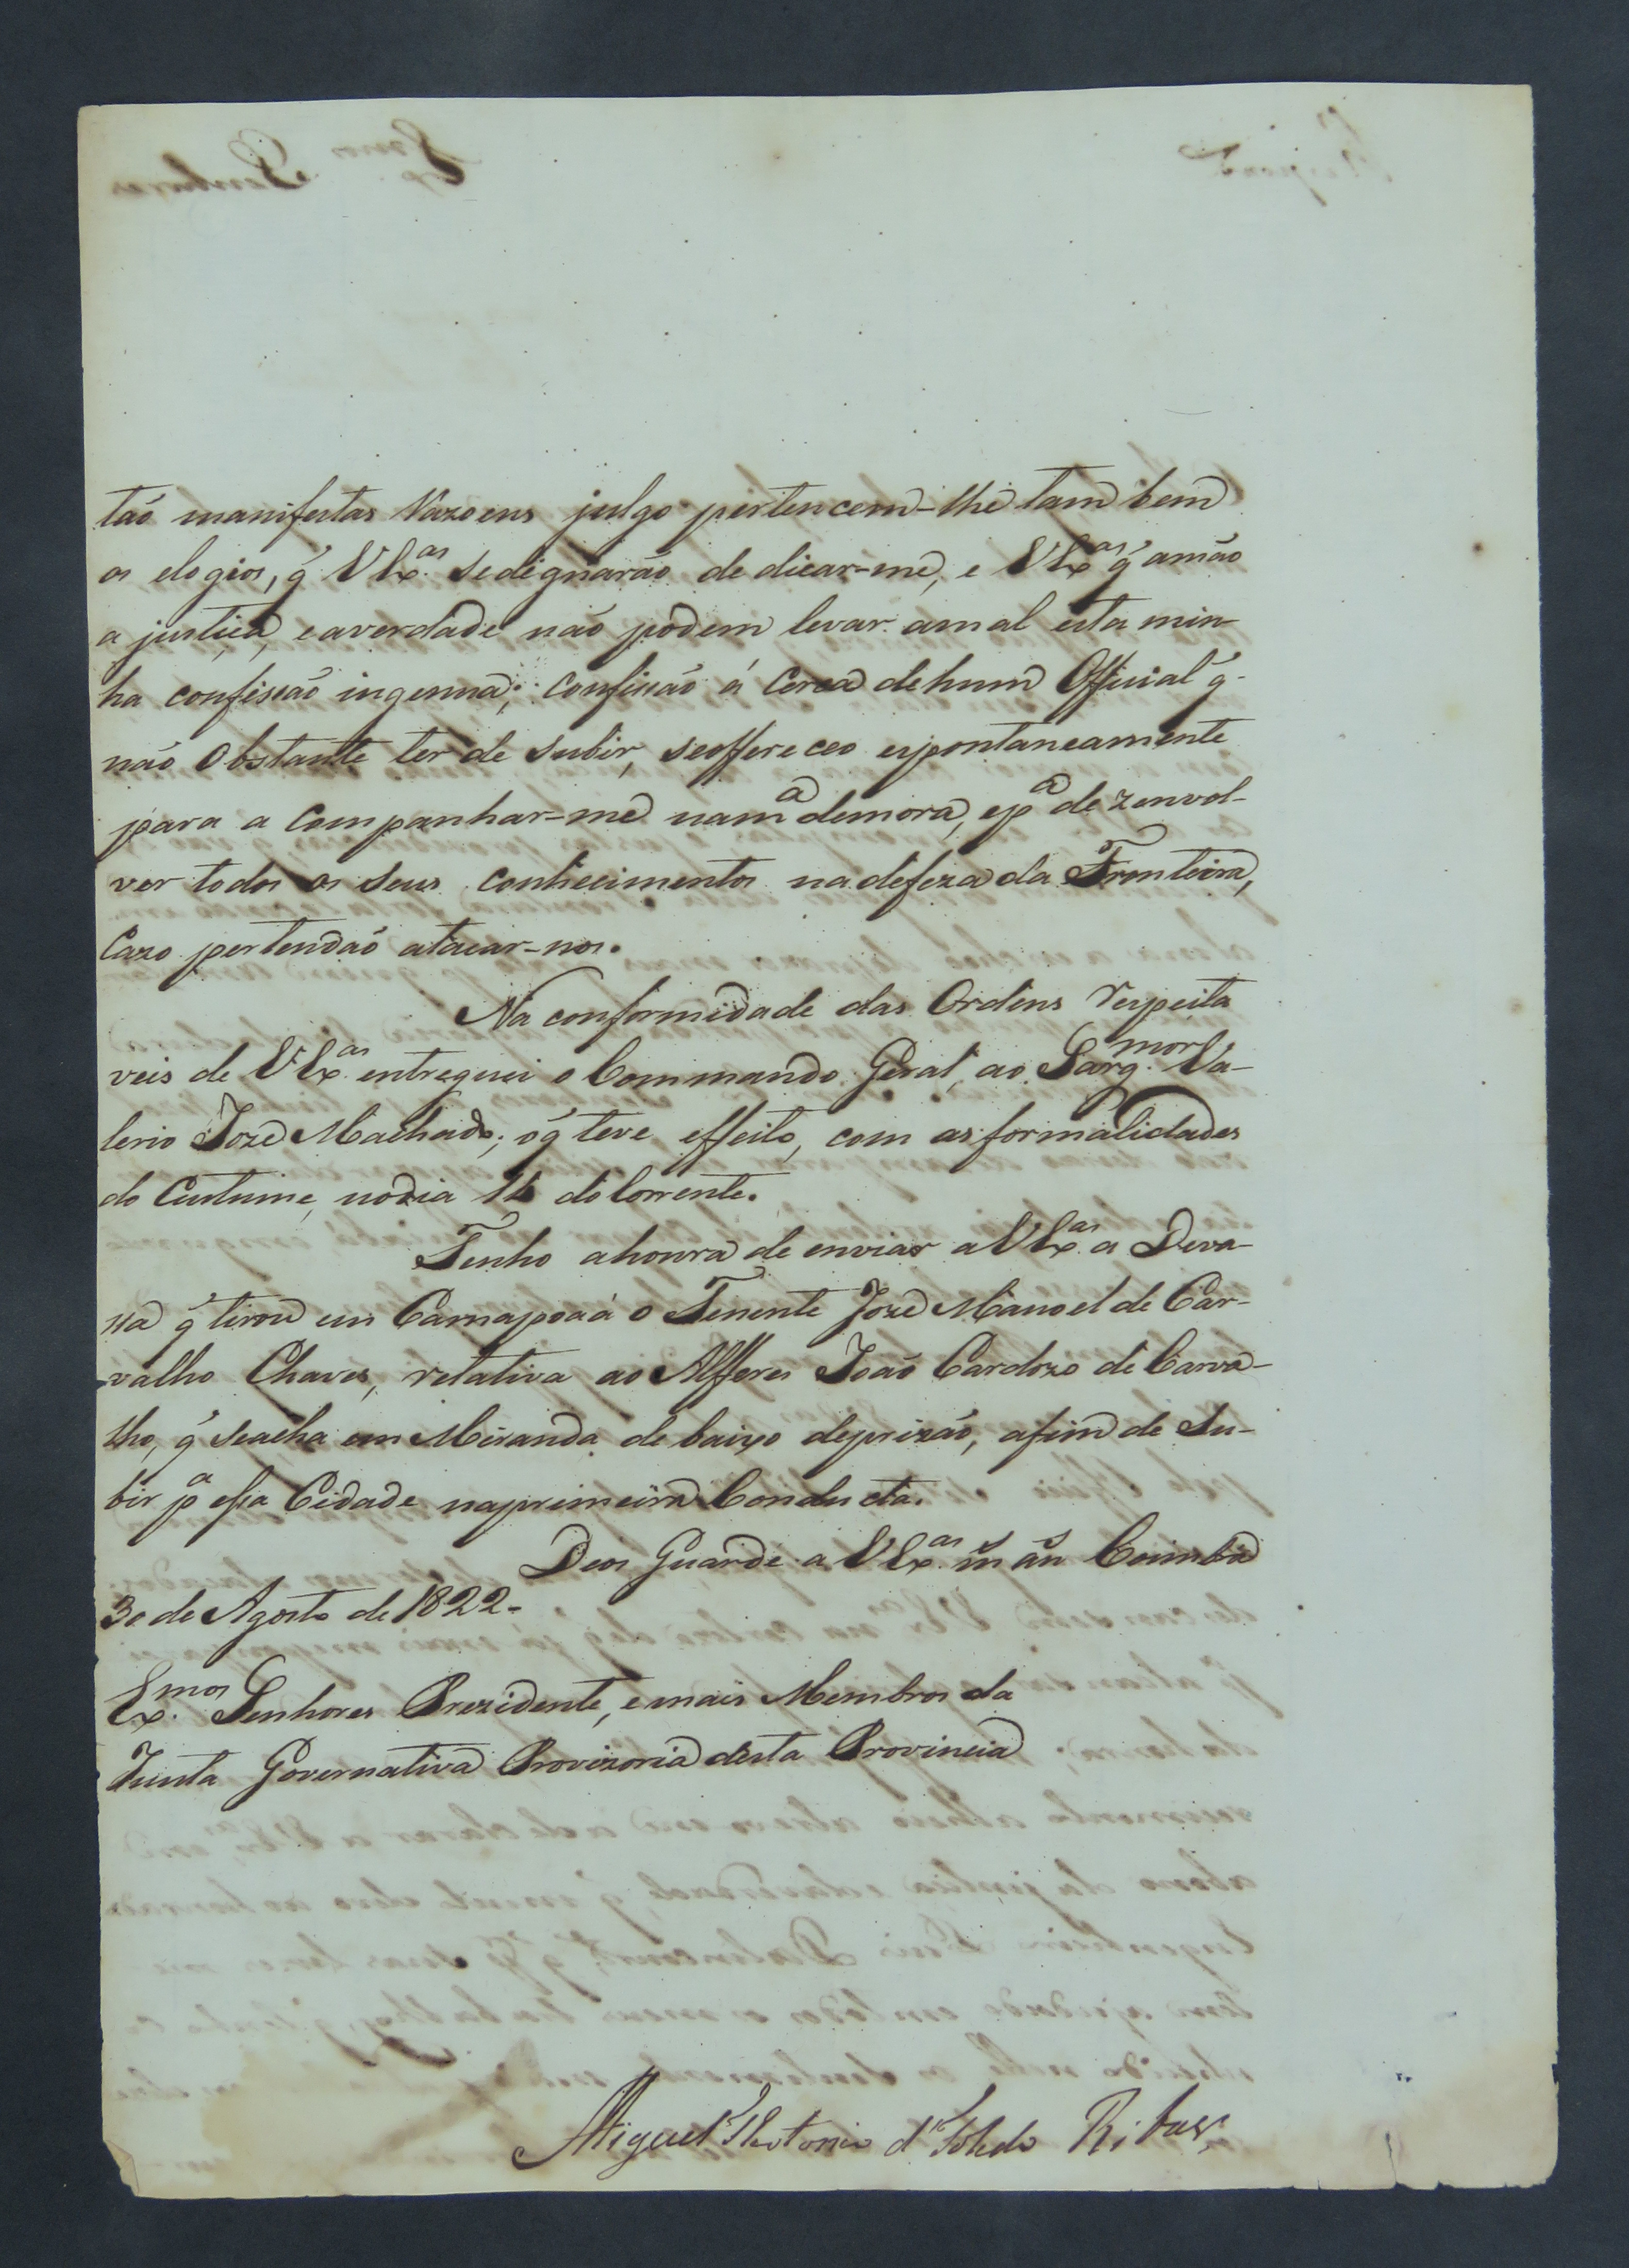 tão manifestas Razoens julgo pertencem-lhe tambem
os elogios, q̃ VEx.as sedignarão dedicar-me, e VEx.as q̃ amão
a justiça, eaverdade não podem levar amal esta min-
ha confissão ingenua; confissão á Cerca dehum Official q̃
não Obstante ter de subir, seoffereceo espontaneamente
para acompanhar-me nam.a demora, ep.a dezenvol-
ver todos os seus conhecimentos nadefeza da Fronteira,
Cazo pertendaõ atacar-nos.
Na conformidade das Ordens respeita
veis de VEx.as entreguei o Commando Geral, ao Sarg.mor Va-
lerio Jozé Machado; oq̃ teve effeito, com asformalidades
do Custume, nodia 14 doCorrente.
Tenho ahonra de enviar aVEx.as a Deva-
ssa q̃ tirou em Camapoaã o Tenente Jozé Manoel de Car-
valho Chaves, relativa ao Alferes João Cardozo de Carva-
lho, q̃ seacha em Miranda debaixo deprizão, afim de Su-
bir p.a essa Cidade naprimeira Conducta.
Deos Guarde a VEx.as m.s an.s Coimbra
30 de Agosto de 1822.
Ex.mos Senhores Prezidente, emais Membros da
Junta Governativa Provizoria desta Provincia
Miguel Antonio d'Toledo Ribas